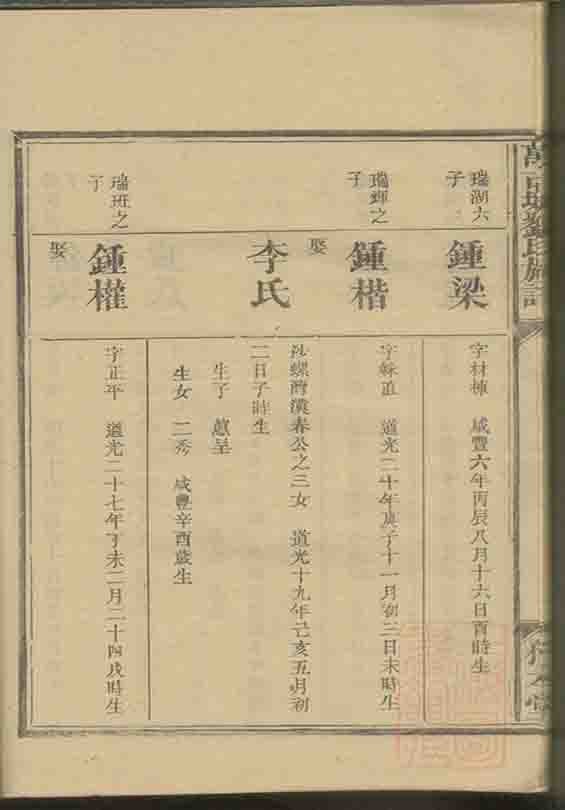 瑞湖六
子
鍾梁
字材棟 咸豐六年丙辰八月十六日酉時生
瑞輝之
子
鍾楷
字蝀直 道光二十年庚子十一月初三日未時生
娶
李氏
沙螺灣漢春公之三女 道光十九年己亥五月初
二日子時生
生子 蕙呈
生女 二秀 咸豐辛酉歲生
瑞班之
子
鍾權
字正平 道光二十七年丁未二月二十四戌時生
娶